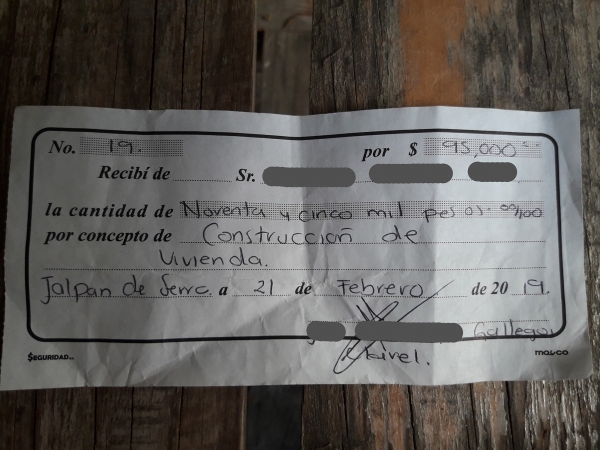 No. 19. por $ 95,000.00
Recibí de Sr.
la cantidad de Noventa y cinco mil pesos. 00/100
por concepto de Construcción de
Vivienda.
Jalpan de Serra a 21 de Febrero de 2019.
Gallegos
SEGURIDAD